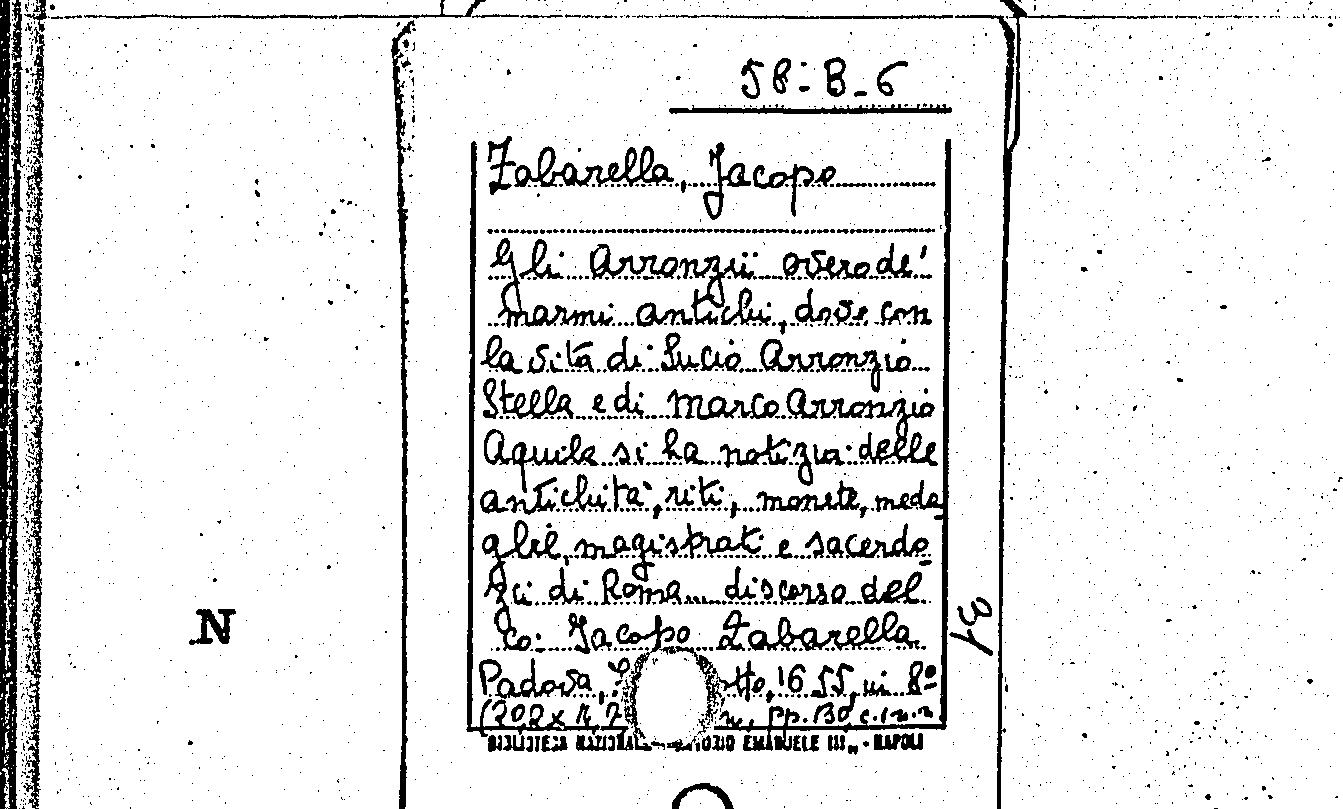 58-B-6
Zabarella, Jacopo
Gli Arronzii overo de'
marmi antichi, dove con
la vita di Lucio Arronzio
Stella e di Marco Arronzio
Aquila si ha notizia delle
antichità, riti, monete, meda
glie, magistrati e sacerdo
zii di Roma... discorso del
Co: Jacopo Zabarella
Padova, 1655, in 8º
(202x pp. 130, c.1 n.n.
BIBLIOTECA NAZIONALE EMANUELE III„ - NAPOLI
31
N